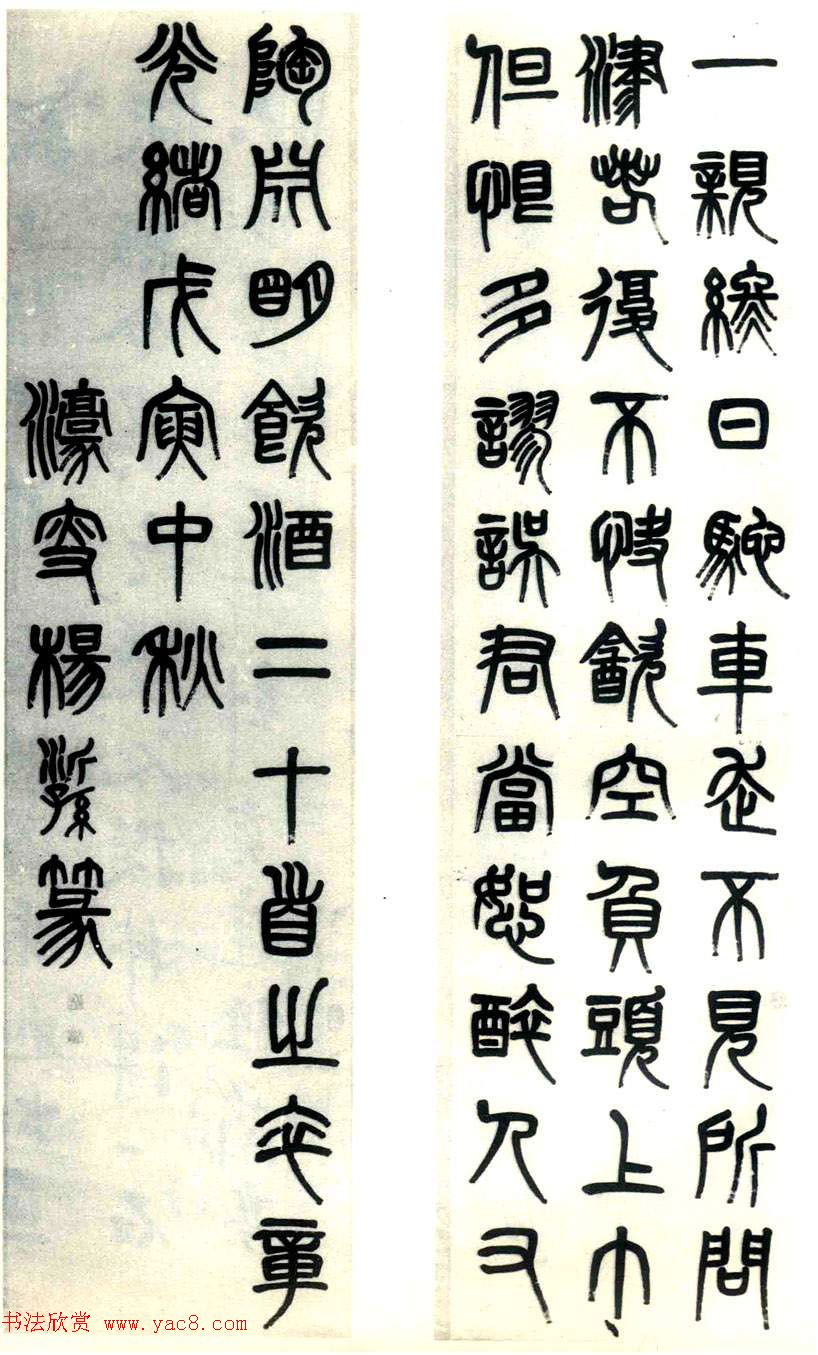 一親終日馳車走不見所問
津若復不快飲空負頭上巾
但恨多謬誤君當恕醉人又
陶淵明飲酒二十首之卒章
光緒戊寅中秋
濠叟楊沂孫篆
书法欣赏 www.yac8.com